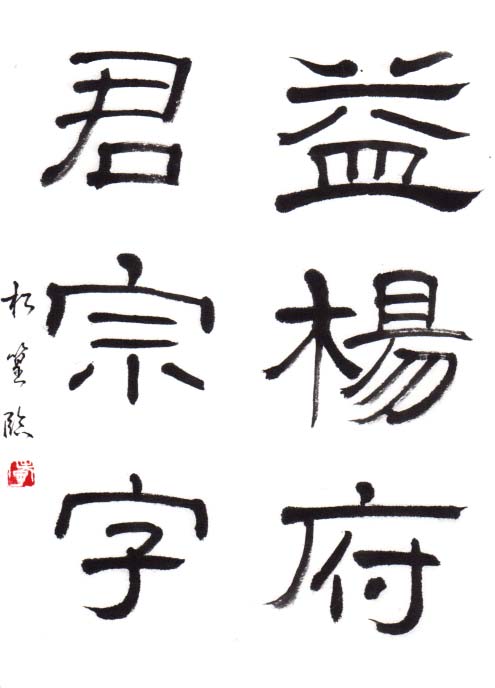 益楊府
君宗字
松篁臨